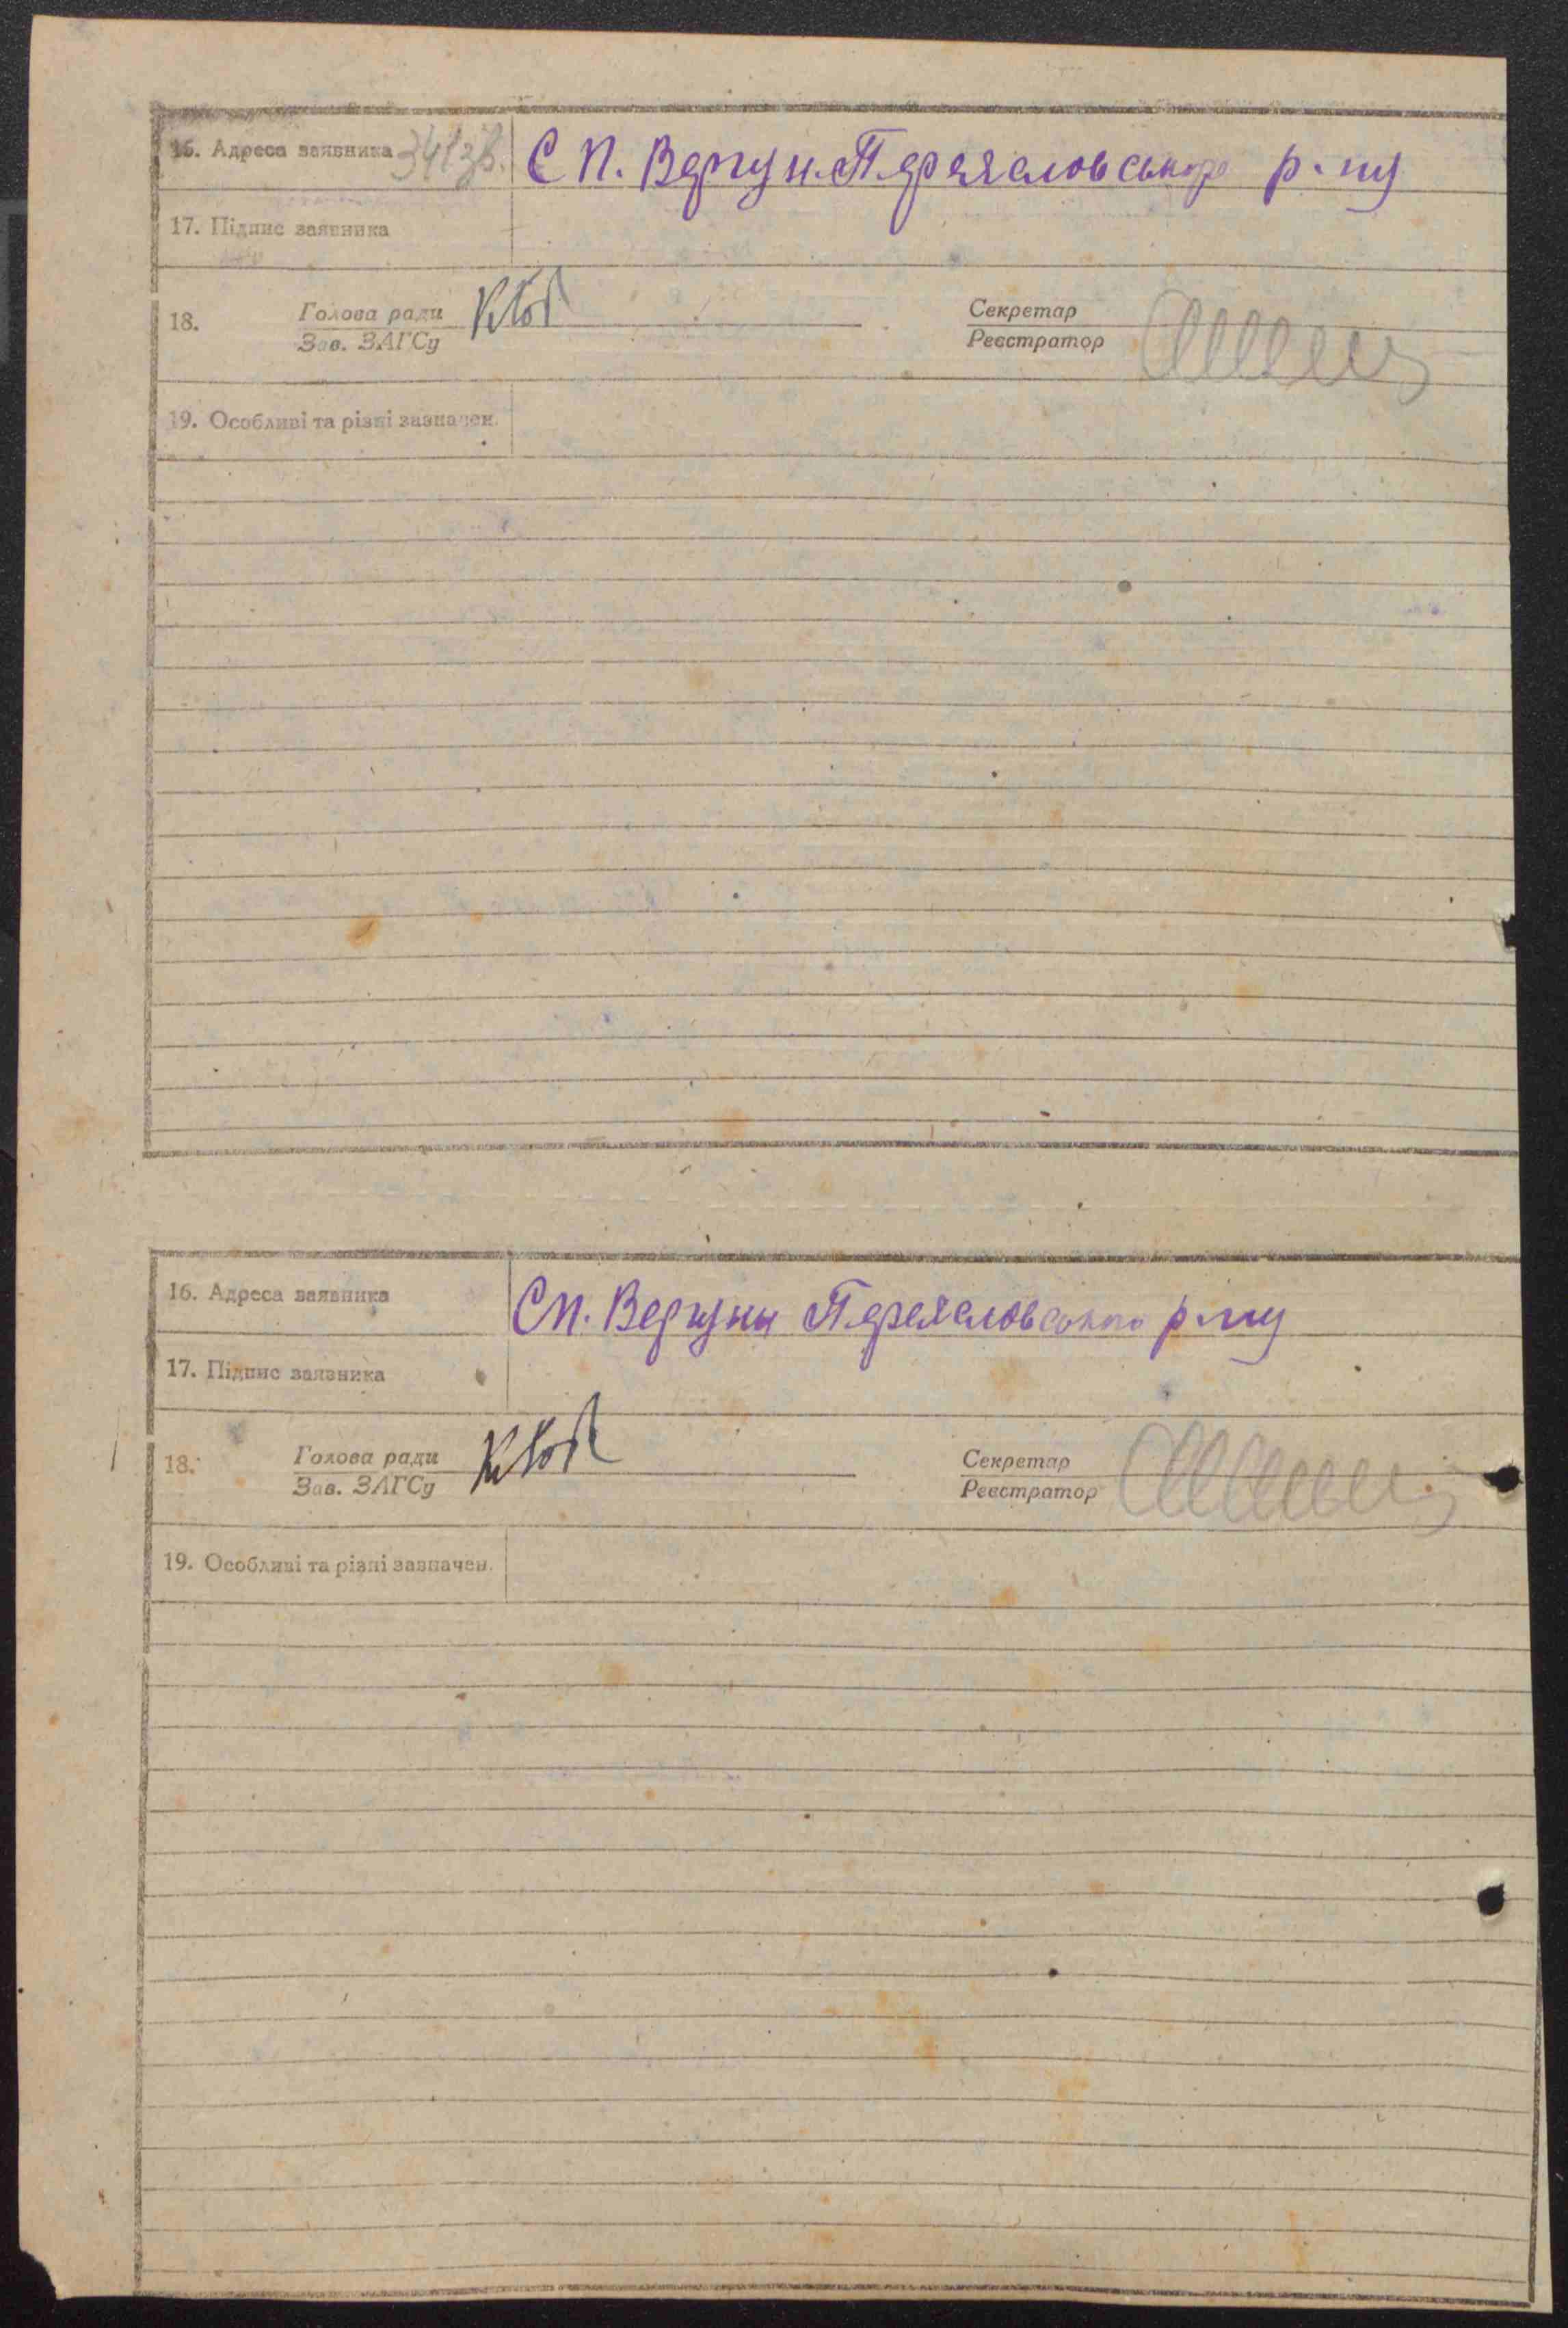 16. Адреса заявника 341зв. С П. Вергун. Переяславського р. ну
17. Підпис заявника
18. Голова ради Секретар
Зав. ЗАГСу Реєстратор
19. Особливі та різні зазначен.
16. Адреса заявника СП. Вергуны Переяславського р. ну
17. Підпис заявника
18. Голова ради Секретар
Зав. ЗАГСу Реєстратор
19. Особливі та різні зазначен.